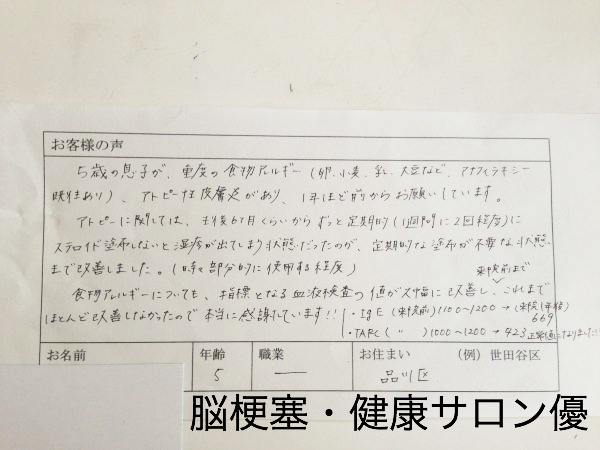 お客様の声
5歳の息子が、重度の食物アレルギー(卵、小麦、乳、大豆など、アナフィラキシー
既往あり)、アトピー性皮膚炎があり、1年ほど前からお願いしています。
アトピーに関しては、生後6ヶ月くらいからずっと定期的(1週間に2回程度)に
ステロイド塗布しないと湿疹が出てしまう状態だったのが、定期的な塗布が不要な状態
まで改善しました。(時々部分的に使用する程度)
来院前まで
食物アレルギーについても、指標となる血液検査の値が大幅に改善し、これまで
ほとんど改善しなかったので本当に感謝しています!!
・IgE (来院前)1100~1200→(来院1年後)
669
・TARC( 〃 )1000~1200→423 正常値になりました!!
お名前 年齢 職業 お住まい (例)世田谷区
5 ― 品川区
脳梗塞・健康サロン優